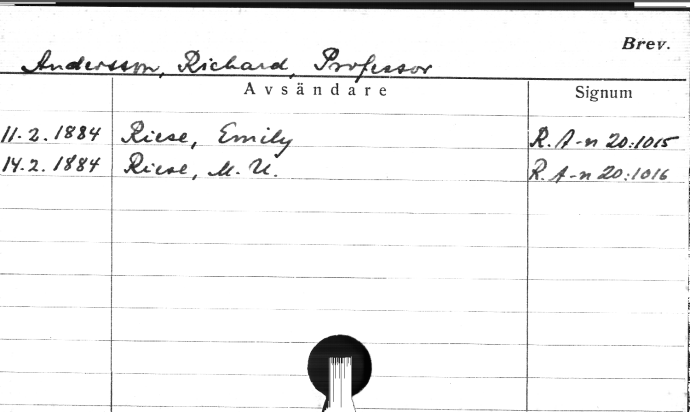 Brev.
Andersson, Richard, Professor
Avsändare Signum
11.2.1884 Riese, Emily R. A-n 20:1015
14.2.1884 Riese, M. U. R. A-n 20:1016